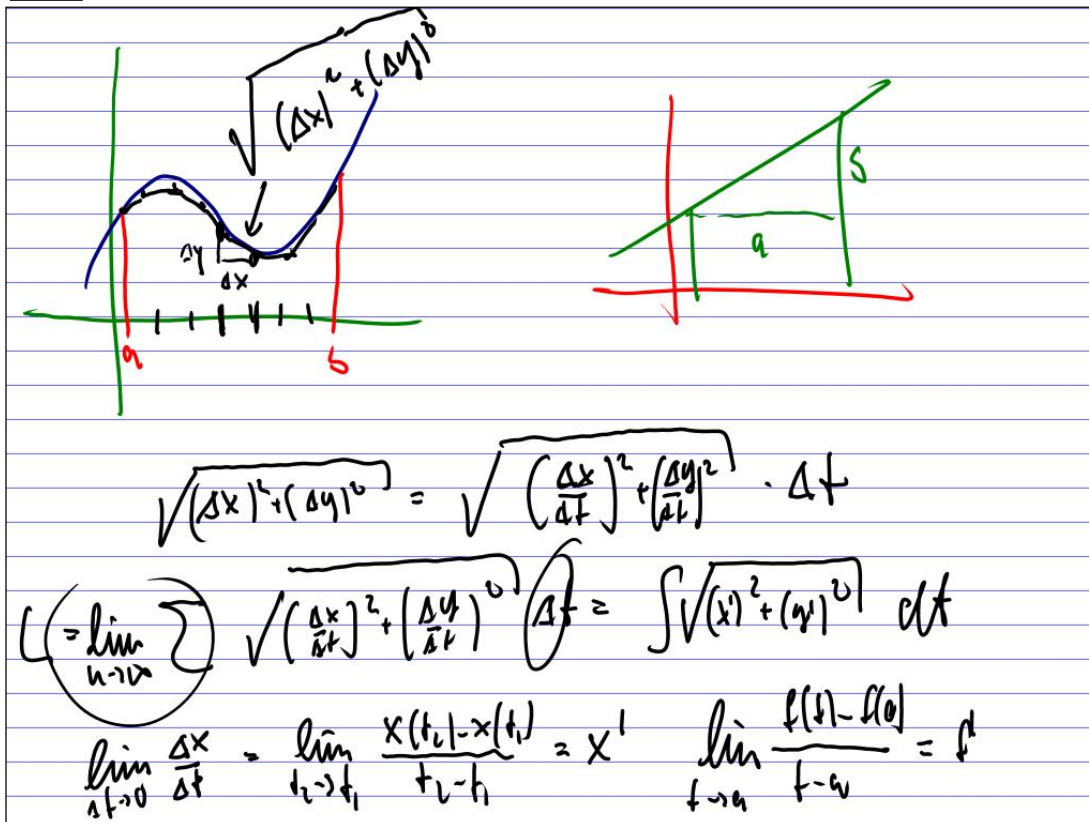 √((Δx)² + (Δy)²)
Δy
Δx
a
b
a
S
√((Δx)² + (Δy)²) = √((Δx/Δt)² + (Δy/Δt)²) · Δt
L = lim n→∞ Σ √((Δx/Δt)² + (Δy/Δt)²) Δt = ∫√((x')² + (y')²) dt
lim Δt→0 Δx/Δt = lim t₂→t₁ (x(t₂) - x(t₁))/(t₂ - t₁) = x' lim t→a (f(t) - f(a))/(t - a) = f'